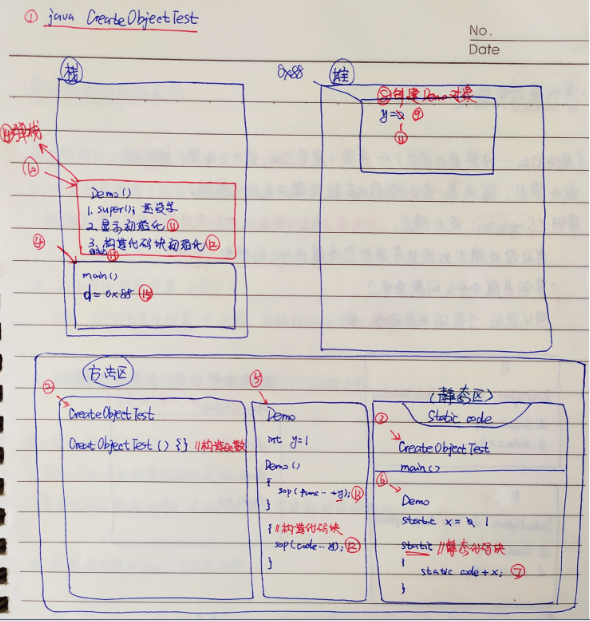 ① java CreateObjectTest
No.
Date
栈
0x88
堆
⑧创建Demo对象
y=0 ⑨
⑪
⑭弹栈
⑩
Demo()
1. super(); 还没学
2. 显示初始化 ⑪
3. 构造代码块初始化 ⑫
⑬
④
main()
d=0x88 ⑮
方法区
②
CreateObjectTest
CreatObjectTest () {} //构造函数
⑤
Demo
int y=1
Demo()
{
sop(func…+y); ⑬
}
{ //构造代码块
sop(code…y); ⑫
}
(静态区)
Static code
③
CreateObjectTest
main()
⑥
Demo
static x=0 1
static //静态代码块
{
static code+x; ⑦
}